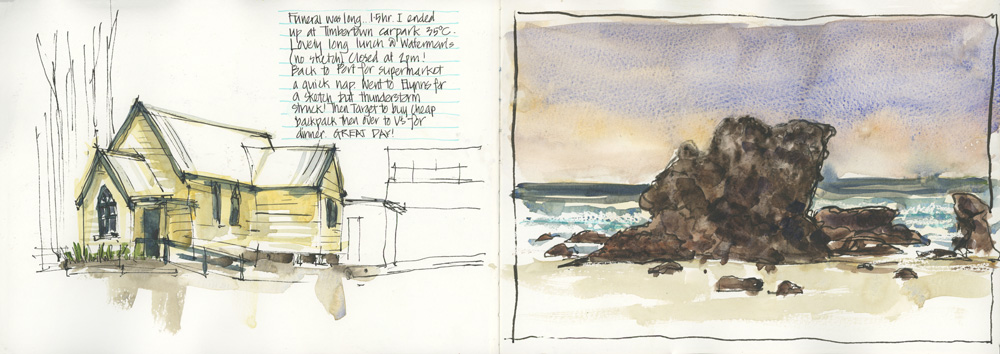 Funeral was long. 1.5hr. I ended
up at Timbertown carpark 35°C.
Lovely long lunch @ Watermans
(no sketch) Closed at 2pm!
Back to Port for supermarket
a quick nap. Went to Flynns for
a sketch but thunderstorm
struck! Then Target to buy cheap
backpack then over to V's for
dinner. GREAT DAY!